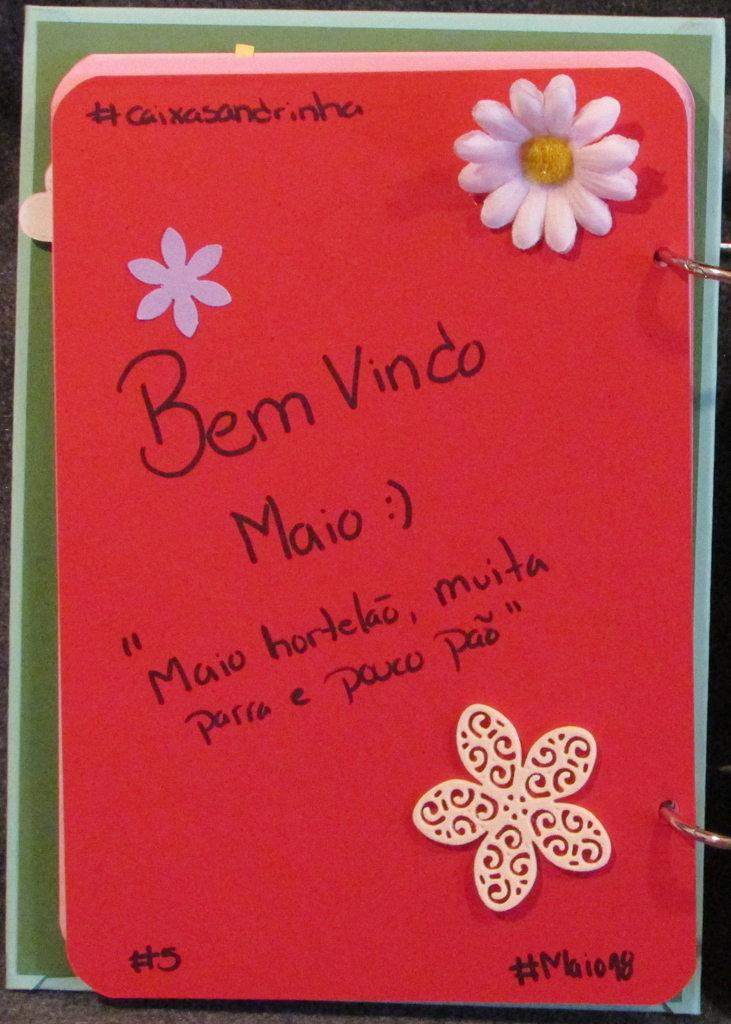 #caixasandrinha
Bem Vindo
Maio :)
"Maio hortelão, muita
parra e pouco pão"
#5
#Maio98